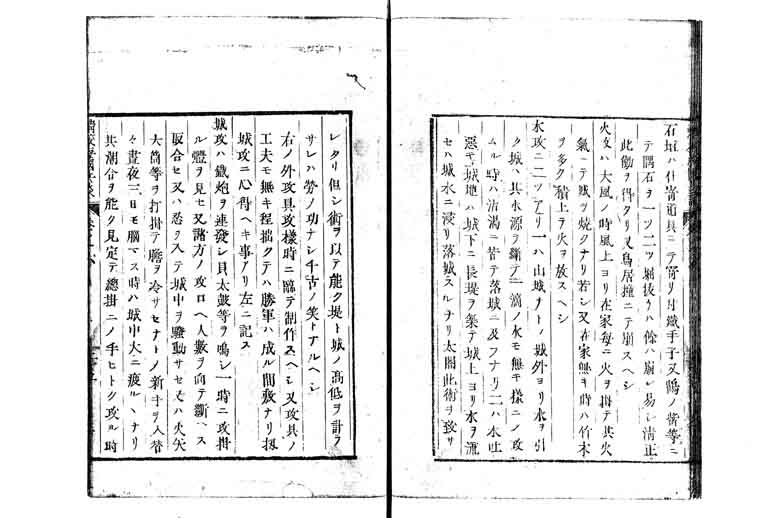 石垣ハ仕寄道具ニテ寄リ付鐵手子又鴨ノ觜等ニ
テ隅石ヲ一ツ二ツ堀抜クハ餘ハ崩レ易シ清正
此働ヲ得タリ又鳥居撞ニテ崩スヘシ
火攻ハ大風ノ時風上ヨリ在家毎ニ火ヲ掛テ其火
氣ニテ城ヲ燒クナリ若シ又在家無キ時ハ竹木
ヲ多ク積上ケ火ヲ放スヘシ
水攻ニ二ツアリ一ハ山城ナトノ城外ヨリ水ヲ引
ク城ハ其水源ヲ斷テ一滴ノ水モ無キ様ニノ攻
ムル時ハ沽渇ニ苦テ落城ニ及フナリ二ハ水吐
惡キ城地ハ城下ニ長堤ヲ築テ城上ヨリ水ヲ流
セハ城水ニ浸リ落城スルナリ太閤此術ヲ致サ
レタリ但シ術ヲ以テ能ク堤ト城ノ高低ヲ計ラ
サレハ勞ノ功ナシ千古ノ笑トアルヘシ
右ノ外攻具攻様時ニ臨テ制作スヘシ又攻具ノ
工夫モ無キ程拙クテハ勝軍ハ成ル間敷ナリ扨
城攻ニ心得ヘキ事アリ左ニ記ス
城攻ハ鐵炮ヲ連發シ貝太鼓等ヲ鳴シ一時ニ攻掛
ル體ヲ見セ又諸方ノ攻口ヘ人數ヲ向テ斷ヘス
取合セ又ハ忍ヲ入テ城中ヲ騷動サセ又ハ火矢
大筒等ヲ打掛テ膽ヲ冷サセナトノ新手ヲ入替
々晝夜三日モ腦マス時ハ城中大ニ疲ルヽナリ
其潮合ヲ能ク見定テ總掛ニノ手ヒトク攻ル時